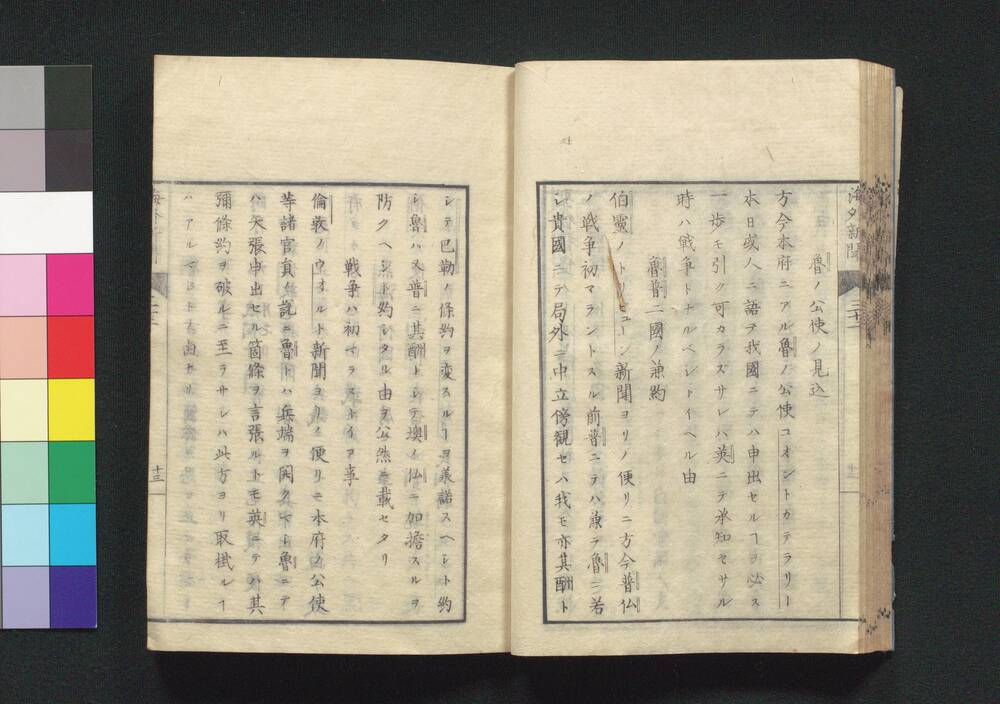 海外新聞
三十二
魯ノ公使ノ見込
方今本府ニアル魯ノ公使コオントカテラリー
水日或人ニ語テ我國ニテハ申出セルヿヲ必ス
一歩モ引ク可カラズサレハ英ニテ承知セサル
時ハ戰争トナルベシトイヘル由
魯普二國ノ兼約
伯靈ノトリビューン新聞ヨリノ便リニ方今普仏
ノ戦争初マラントスル前普ニテハ兼テ魯ニ若
シ貴國ニテ局外ニ中立傍観セハ我モ亦其酬ト
シテ巴勒ノ條約ヲ変スルヿヲ義諾スヘシト約
シ魯ハス普ニ其酬トシテ墺ノ仏ニ加擔スルヲ
防クヘシト約シタル由ヲ公然ニ載セタリ
戦争ハ初マラストイフ事
倫敦ノウオルト新聞ヨリノ便リニ本府ノ公使
等諸官員ノ説ニ魯トハ兵端ヲ開クマシ魯ニテ
ハ矢張申出セル箇條ヲ言張ルトモ英ニテハ其
彌條約ヲ破ルニ至ラサレハ此方ヨリ取掛ルヿ
ハアルマシト
十三